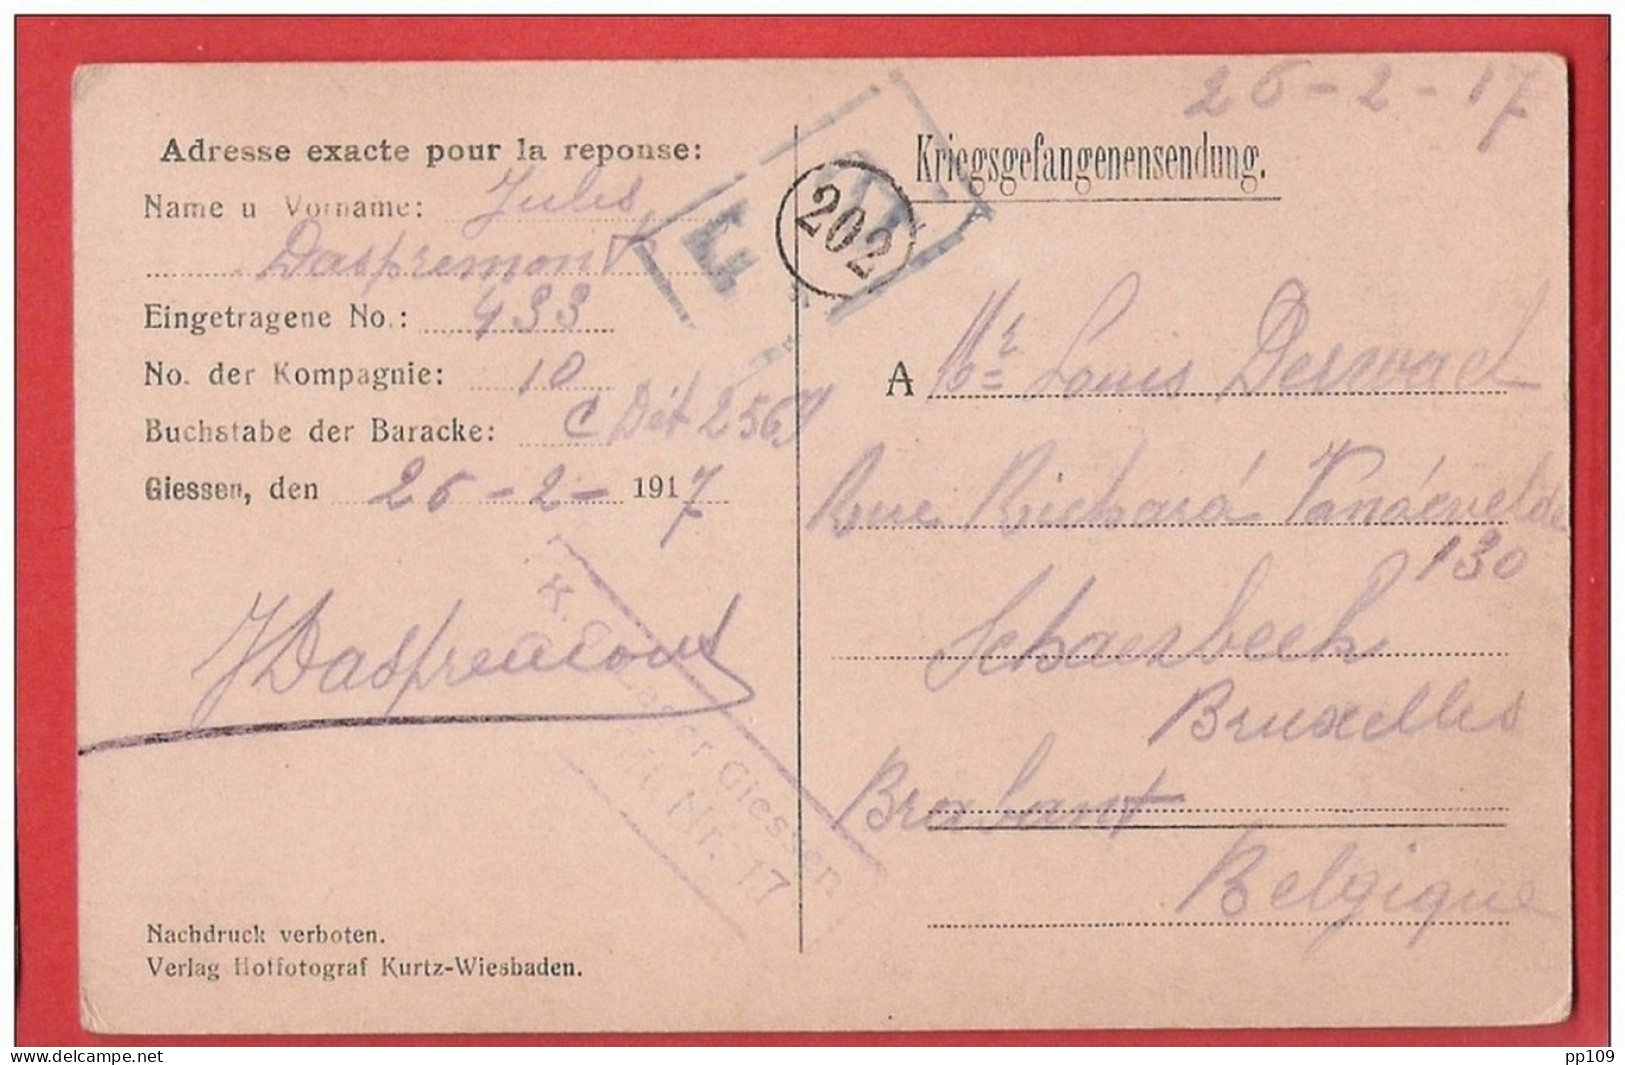 26-2-17
Adresse exacte pour la reponse:
Name u Vorname: Jules
Daspremont
Eingetragene No.: 433
No. der Kompagnie: 10
Buchstabe der Baracke: C Dét 2569
Giessen, den 26-2-1917
JDaspremont
Nachdruck verboten.
Verlag Hoffotograf Kurtz-Wiesbaden.
202
Kriegsgefangenensendung.
A Mr Louis
Rue Richard Vandevelde
130
Schaerbeek
Bruxelles
Brabant
Belgique
Giessen
Nr. 17
www.delcampe.net
pp109